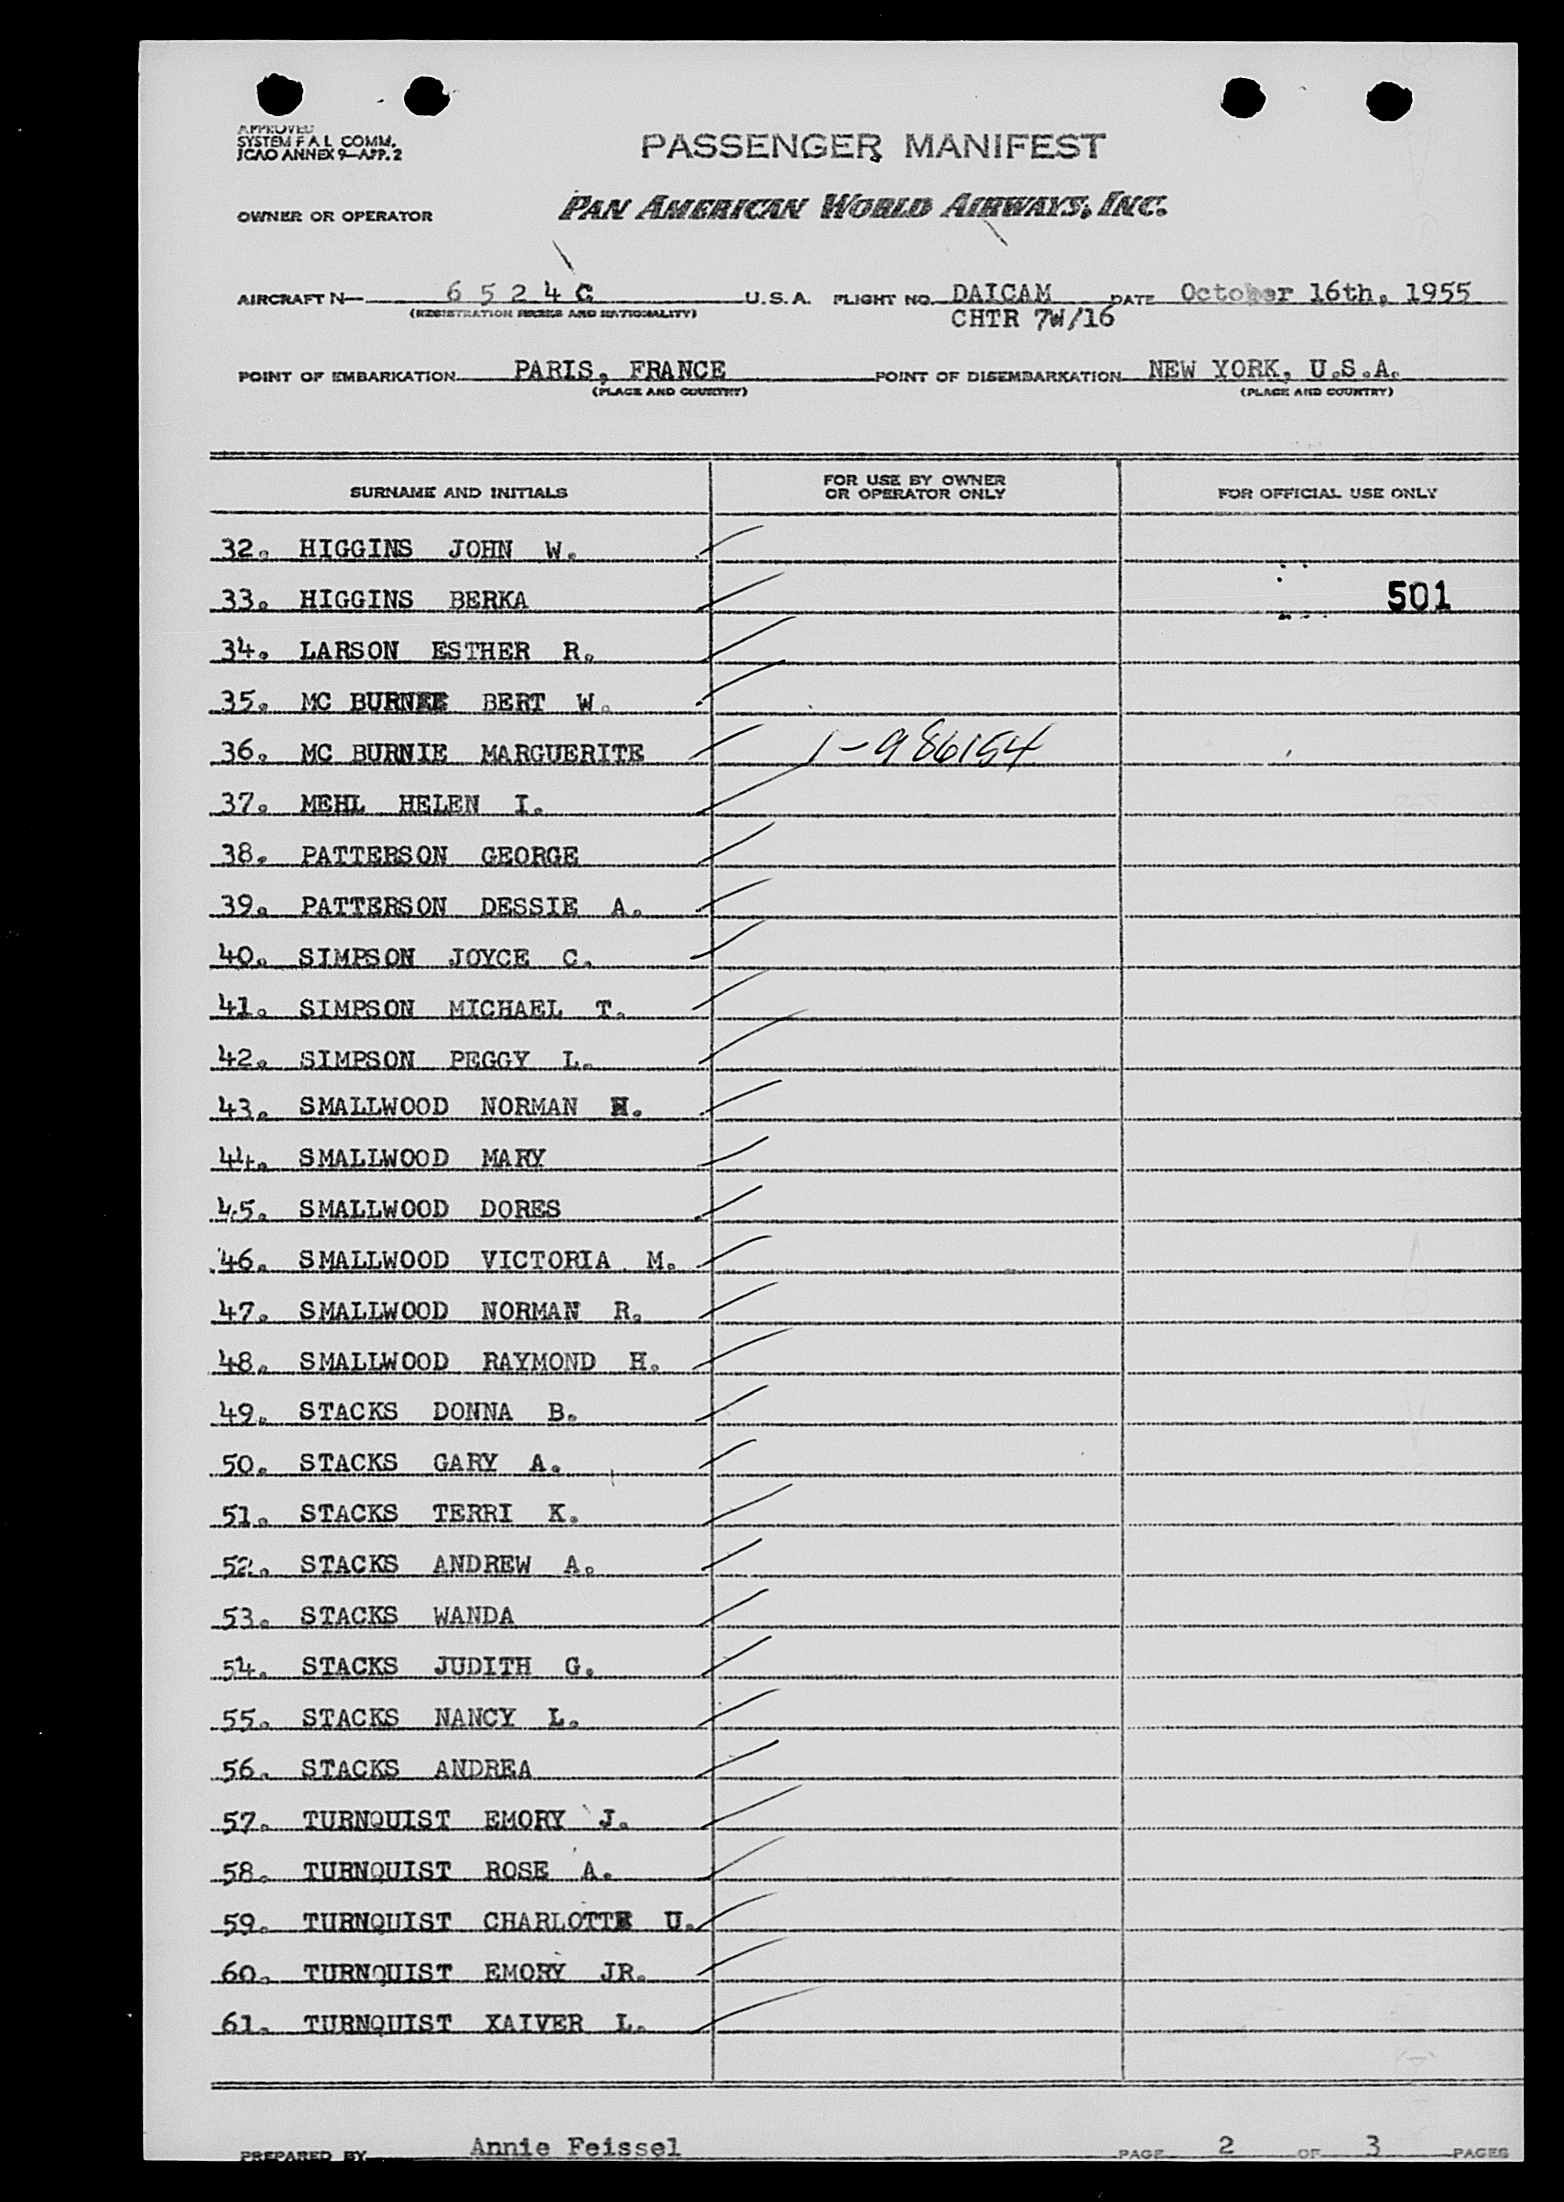 APPROVED
SYSTEM F A L COMM.
ICAO ANNEX 9—APP. 2
PASSENGER MANIFEST
OWNER OR OPERATOR PAN AMERICAN WORLD AIRWAYS, INC.
AIRCRAFT N— 6524C U.S.A. FLIGHT NO. DAICAM DATE October 16th, 1955
(REGISTRATION MARKS AND NATIONALITY) CHTR 7W/16
POINT OF EMBARKATION PARIS, FRANCE POINT OF DISEMBARKATION NEW YORK, U.S.A.
(PLACE AND COUNTRY) (PLACE AND COUNTRY)
SURNAME AND INITIALS FOR USE BY OWNER OR OPERATOR ONLY FOR OFFICIAL USE ONLY
32. HIGGINS JOHN W.
33. HIGGINS BERKA 501
34. LARSON ESTHER R.
35. MC BURNEE BERT W.
36. MC BURNIE MARGUERITE 1-986154
37. MEHL HELEN I.
38. PATTERSON GEORGE
39. PATTERSON DESSIE A.
40. SIMPSON JOYCE C.
41. SIMPSON MICHAEL T.
42. SIMPSON PEGGY L.
43. SMALLWOOD NORMAN H.
44. SMALLWOOD MARY
45. SMALLWOOD DORES
46. SMALLWOOD VICTORIA M.
47. SMALLWOOD NORMAN R.
48. SMALLWOOD RAYMOND H.
49. STACKS DONNA B.
50. STACKS GARY A.
51. STACKS TERRI K.
52. STACKS ANDREW A.
53. STACKS WANDA
54. STACKS JUDITH G.
55. STACKS NANCY L.
56. STACKS ANDREA
57. TURNQUIST EMORY J.
58. TURNQUIST ROSE A.
59. TURNQUIST CHARLOTTE U.
60. TURNQUIST EMORY JR.
61. TURNQUIST XAIVER L.
PREPARED BY Annie Feissel PAGE 2 OF 3 PAGES